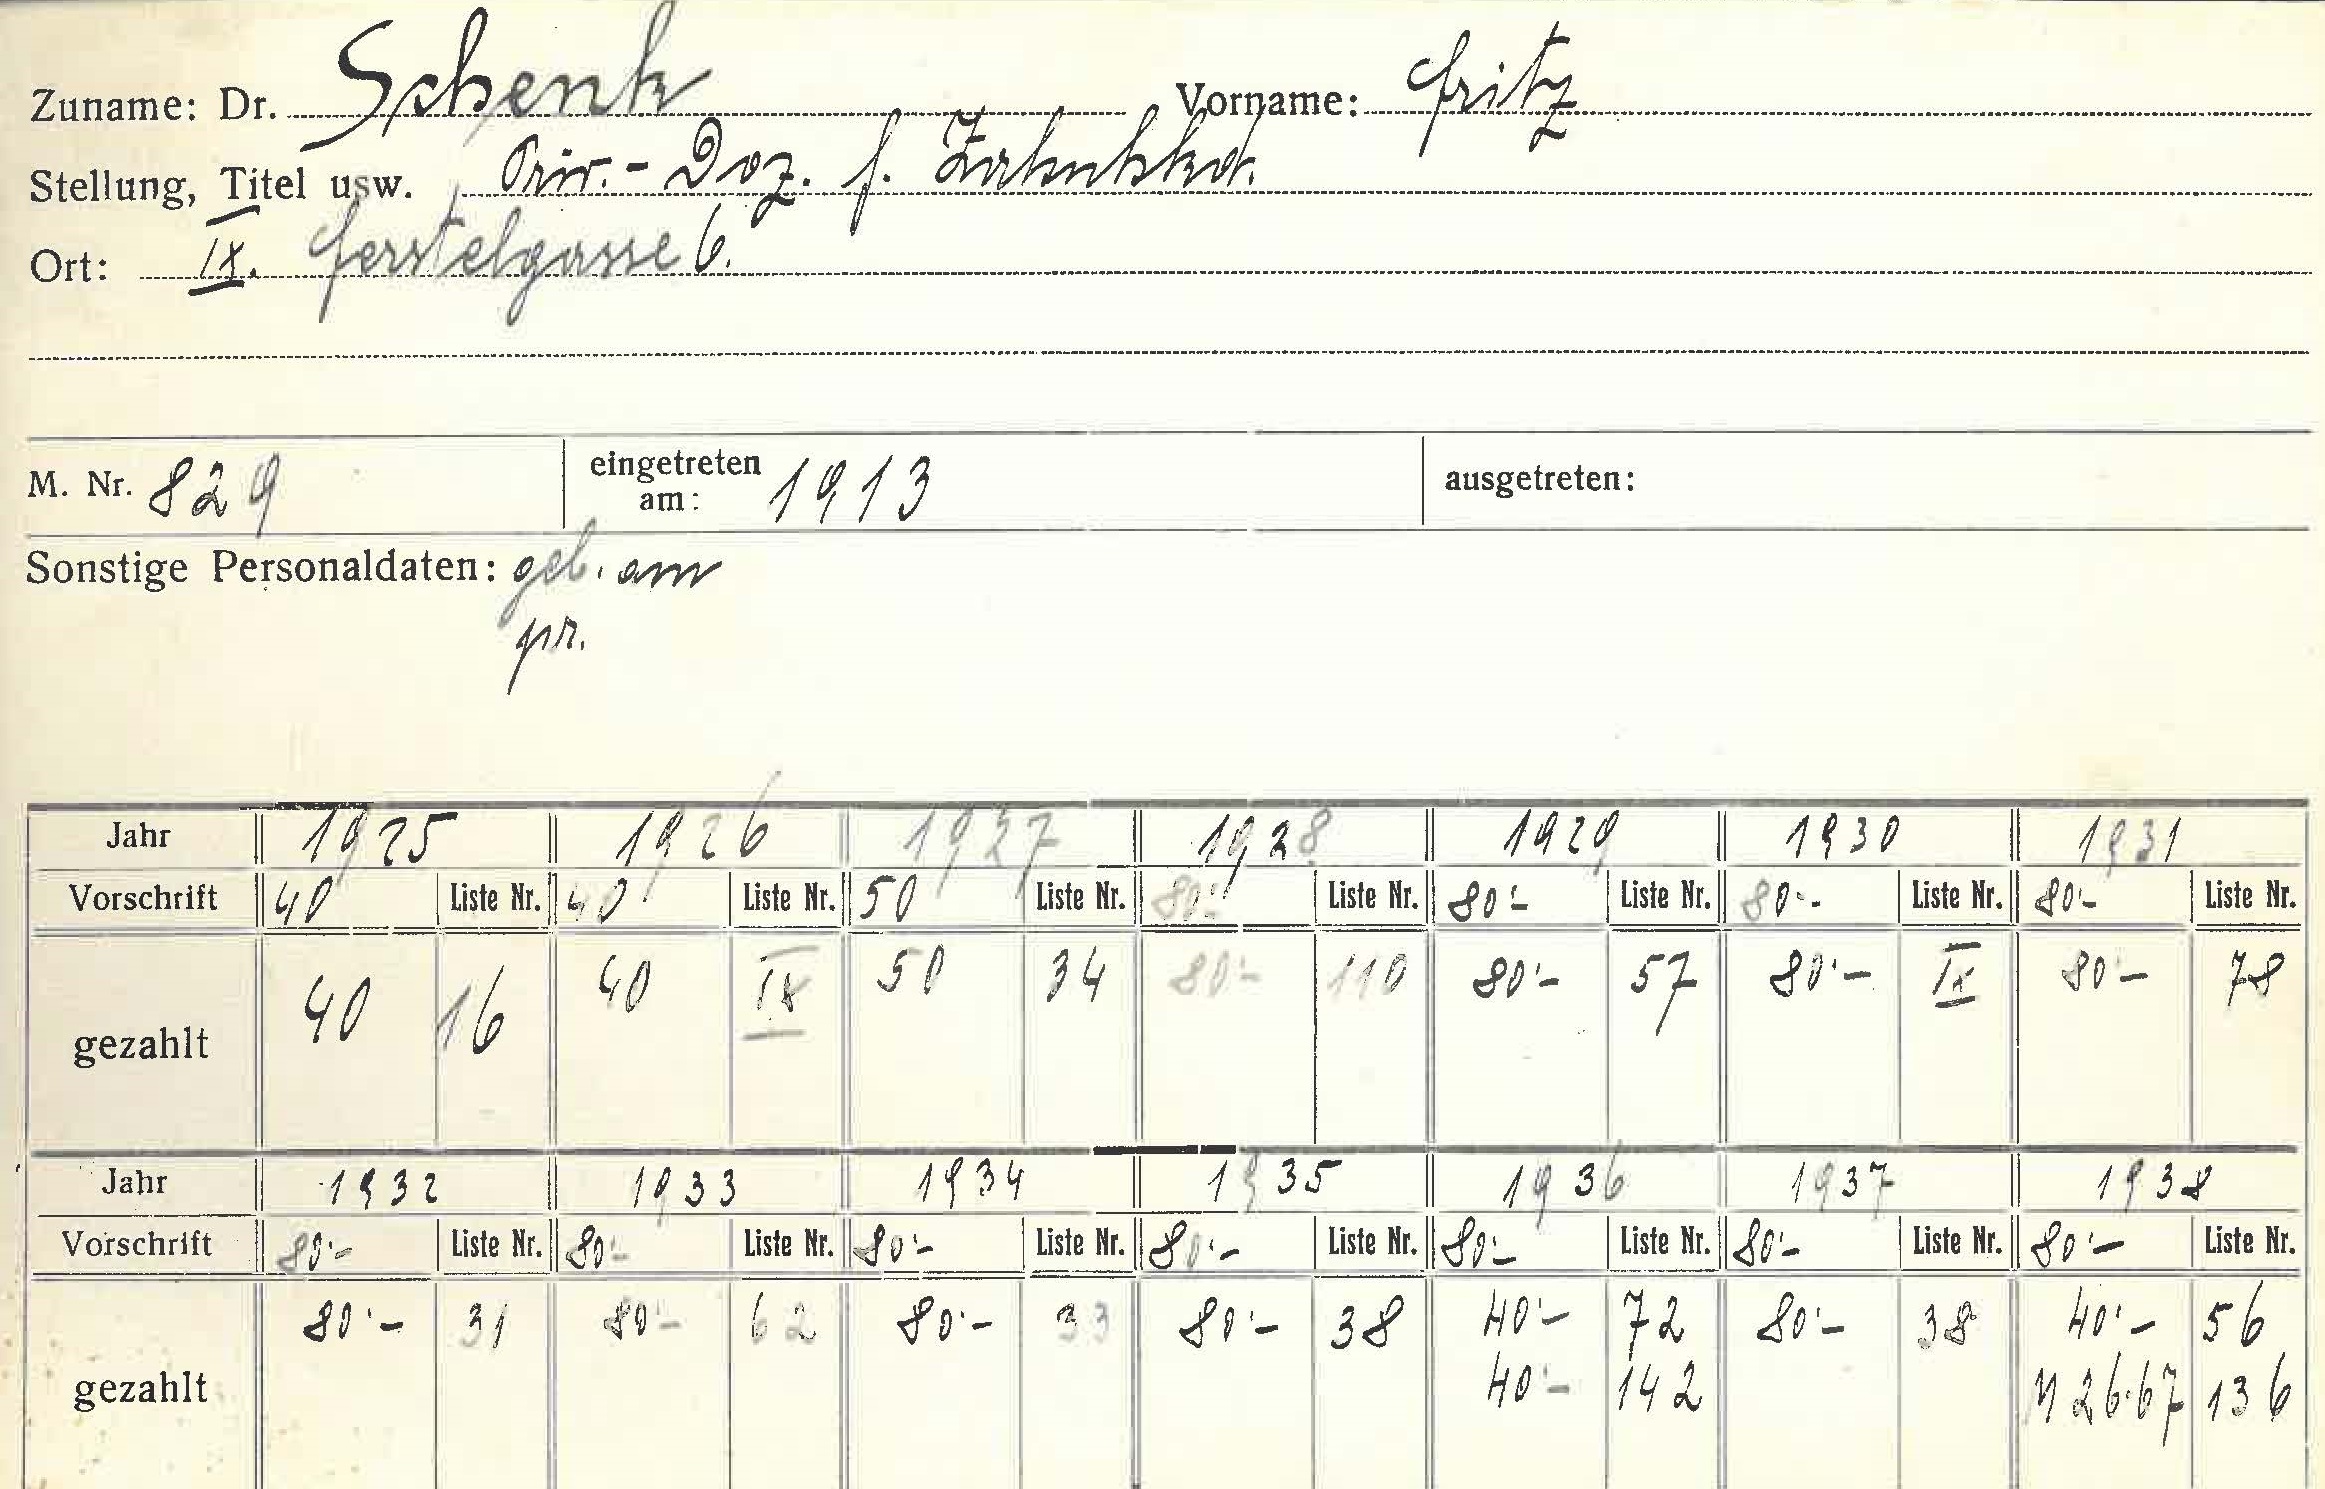 Zuname: Dr. Schenk Vorname: Fritz
Stellung, Titel usw. Priv.-Doz. f. Zahnhkd.
Ort: IX. Ferstelgasse 6.
M. Nr. 829 eingetreten am: 1913 ausgetreten:
Sonstige Personaldaten: geb. am
pr.
Jahr 1925 1926 1927 1928 1929 1930 1931
Vorschrift 40 Liste Nr. 40 Liste Nr. 50 Liste Nr. 80·- Liste Nr. 80·- Liste Nr. 80·- Liste Nr. 80·- Liste Nr.
gezahlt 40 16 40 IX 50 34 80·- 110 80·- 57 80·- IX 80·- 78
Jahr 1932 1933 1934 1935 1936 1937 1938
Vorschrift 80·- Liste Nr. 80·- Liste Nr. 80·- Liste Nr. 80·- Liste Nr. 80·- Liste Nr. 80·- Liste Nr. 80·- Liste Nr.
gezahlt 80·- 31 80·- 62 80·- 33 80·- 38 40·- 72 80·- 38 40·- 56
40·- 142 26·67 136